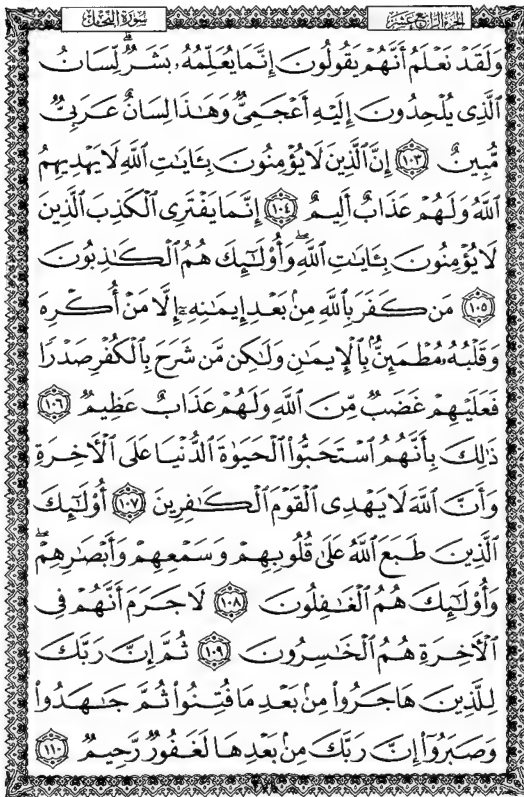 الجزء الرابع عشر
سورة النحل
وَلَقَدْ نَعْلَمُ أَنَّهُمْ يَقُولُونَ إِنَّمَا يُعَلِّمُهُۥ بَشَرٌۗ لِّسَانُ
ٱلَّذِى يُلْحِدُونَ إِلَيْهِ أَعْجَمِىٌّ وَهَٰذَا لِسَانٌ عَرَبِىٌّ
مُّبِينٌ ١٠٣ إِنَّ ٱلَّذِينَ لَا يُؤْمِنُونَ بِـَٔايَٰتِ ٱللَّهِ لَا يَهْدِيهِمُ
ٱللَّهُ وَلَهُمْ عَذَابٌ أَلِيمٌ ١٠٤ إِنَّمَا يَفْتَرِى ٱلْكَذِبَ ٱلَّذِينَ
لَا يُؤْمِنُونَ بِـَٔايَٰتِ ٱللَّهِۖ وَأُو۟لَٰٓئِكَ هُمُ ٱلْكَٰذِبُونَ
١٠٥ مَن كَفَرَ بِٱللَّهِ مِنۢ بَعْدِ إِيمَٰنِهِۦٓ إِلَّا مَنْ أُكْرِهَ
وَقَلْبُهُۥ مُطْمَئِنٌّۢ بِٱلْإِيمَٰنِ وَلَٰكِن مَّن شَرَحَ بِٱلْكُفْرِ صَدْرًا
فَعَلَيْهِمْ غَضَبٌ مِّنَ ٱللَّهِ وَلَهُمْ عَذَابٌ عَظِيمٌ ١٠٦
ذَٰلِكَ بِأَنَّهُمُ ٱسْتَحَبُّوا۟ ٱلْحَيَوٰةَ ٱلدُّنْيَا عَلَى ٱلْءَاخِرَةِ
وَأَنَّ ٱللَّهَ لَا يَهْدِى ٱلْقَوْمَ ٱلْكَٰفِرِينَ ١٠٧ أُو۟لَٰٓئِكَ
ٱلَّذِينَ طَبَعَ ٱللَّهُ عَلَىٰ قُلُوبِهِمْ وَسَمْعِهِمْ وَأَبْصَٰرِهِمْۖ
وَأُو۟لَٰٓئِكَ هُمُ ٱلْغَٰفِلُونَ ١٠٨ لَا جَرَمَ أَنَّهُمْ فِى
ٱلْءَاخِرَةِ هُمُ ٱلْخَٰسِرُونَ ١٠٩ ثُمَّ إِنَّ رَبَّكَ
لِلَّذِينَ هَاجَرُوا۟ مِنۢ بَعْدِ مَا فُتِنُوا۟ ثُمَّ جَٰهَدُوا۟
وَصَبَرُوٓا۟ إِنَّ رَبَّكَ مِنۢ بَعْدِهَا لَغَفُورٌ رَّحِيمٌ ١١٠